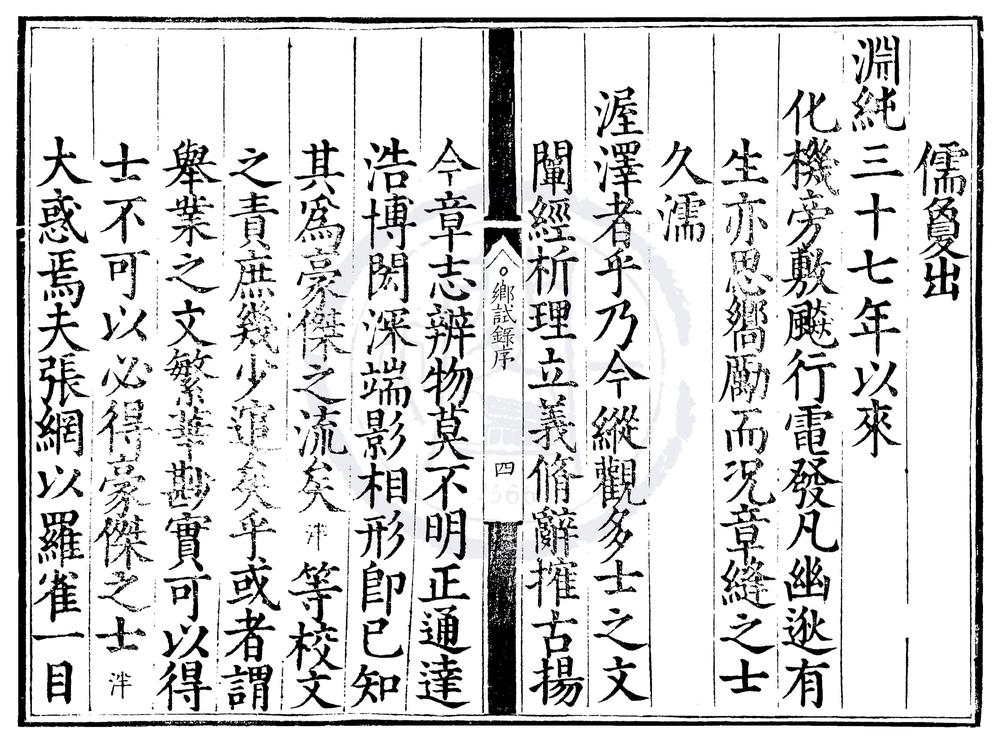 儒敻出
淵純三十七年以來
化機旁敷飈行電發凡幽逖有
生亦思嚮勵而况章縫之士
久濡
渥澤者乎乃今縱觀多士之文
闡經析理立義脩辭搉古揚
鄉試錄序
四
今章志辨物莫不明正通達
浩博閎深端影相形卽已知
其爲豪傑之流矣泮等校文
之責庶幾少逭矣乎或者謂
舉業之文繁華尠實可以得
士不可以必得豪傑之士泮
大惑焉夫張網以羅雀一目